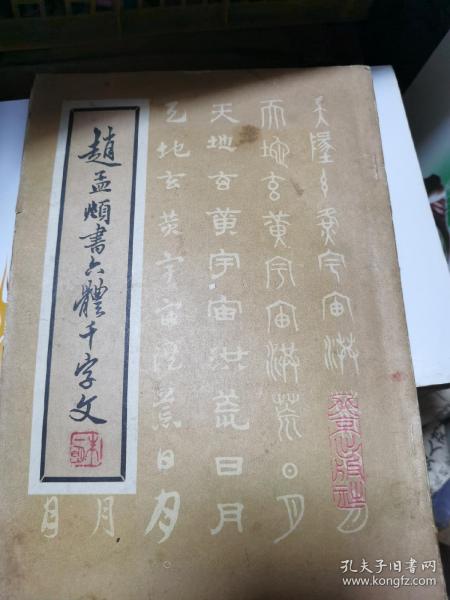 趙孟頫書六體千字文
天地玄黃宇宙洪荒日月
天地玄黃宇宙洪荒日月
天地玄黃宇宙洪荒日月
天地玄黃宇宙洪荒日月
月
月
孔夫子旧书网
www.kongfz.com